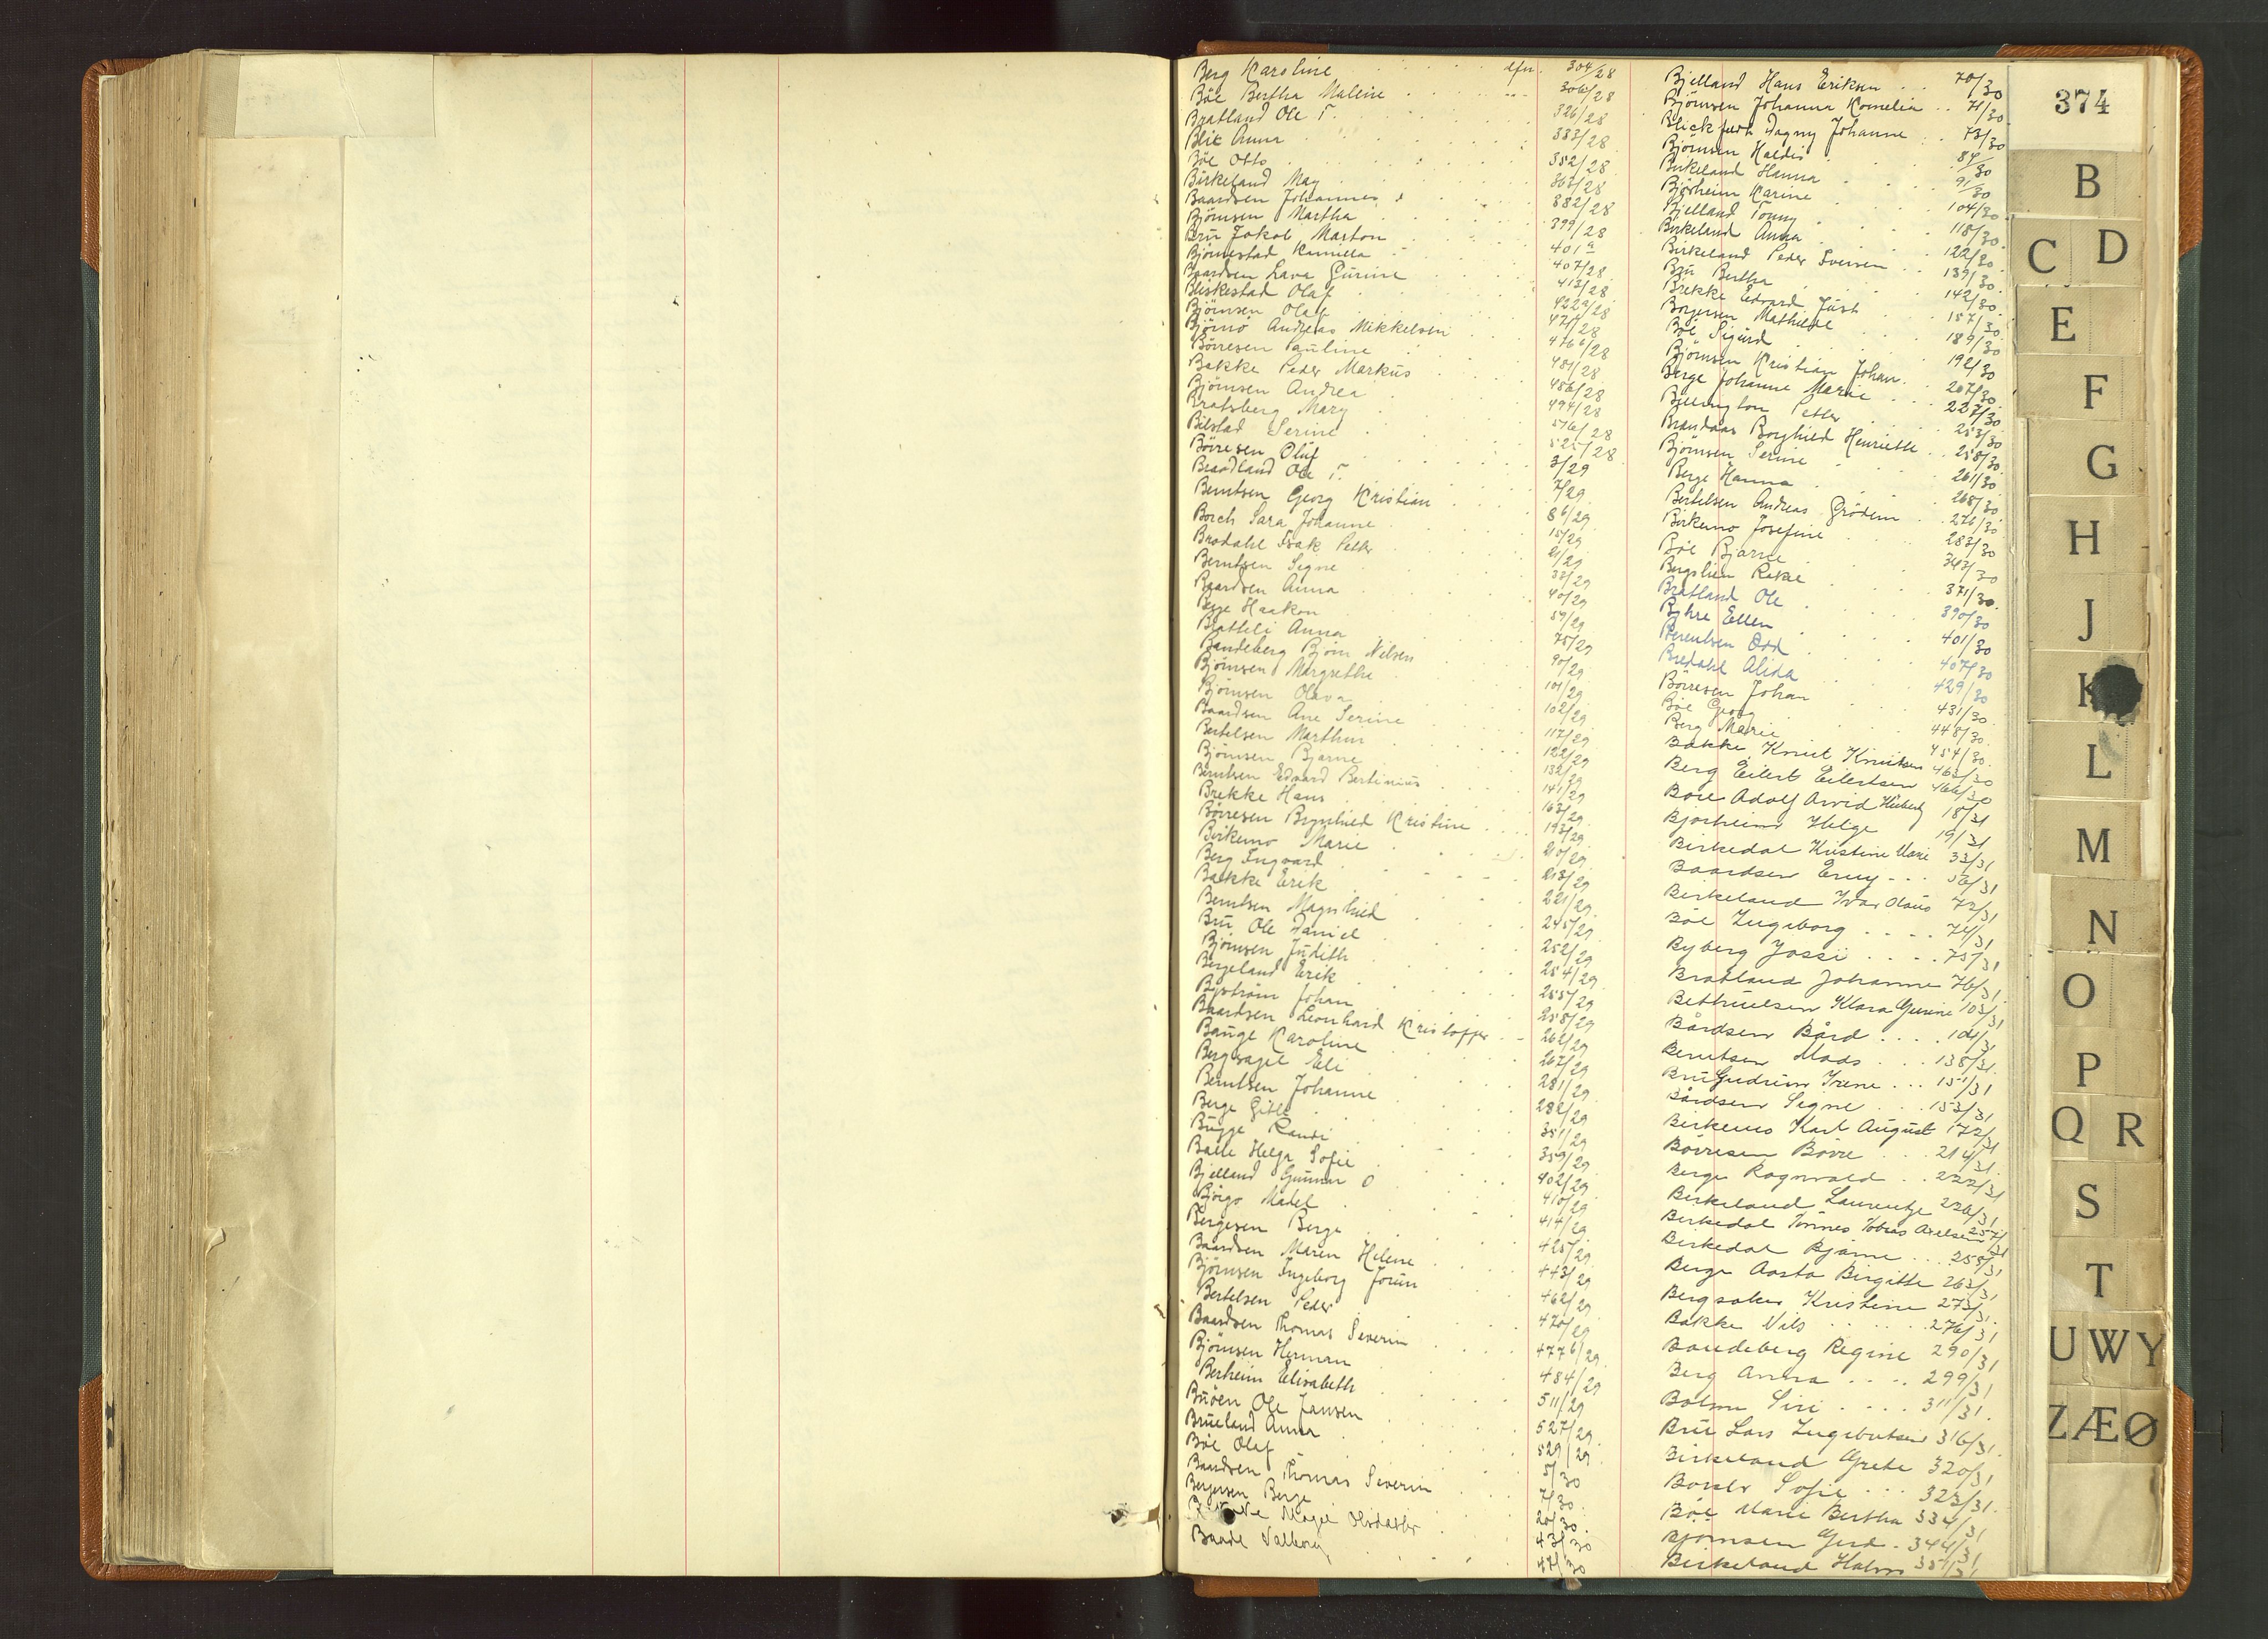 Berg Karoline . . . . . efu. 304/28
Böe Bertha Malene . . . . 306/28
Bratland Ole T. 326/28
Blix Anna 333/28
Böe Otto 352/28
Birkeland May 363/28
Baardsen Johannes 382/28
Björnsen Martha 399/28
Bru Jakob Marton 401 a
Björnestad Kamilla 407/28
Baardsen Lava Gurine 413/28
Bleskestad Olaf 422 a/28
Björnsen Olaf 427/28
Björnö Andreas Mikkelsen 476 b/28
Börresen Pauline 481/28
Bakke Peder Markus 486/28
Björnsen Andrea 494/28
Bratsberg Mary 516/28
Bilstad Serine 525/28
Börresen Oluf 3/29
Braadland Ole T. 7/29
Berntsen Georg Kristian 8 b/29
Borch Sara Johanne 15/29
Brodahl Isak Petter 21/29
Berntsen Signe 33/29
Baardsen Anna 40/29
Berge Haakon 59/29
Bratteli Anna 75/29
Bandeberg Björn Nilsen 90/29
Björnsen Margretha 101/29
Björnsen Olava 102/29
Baardsen Ane Serine 117/29
Bertelsen Marthin 122/29
Björnsen Bjarne 132/29
Berntsen Edvard Bertinius 141/29
Brekke Hans 163/29
Börresen Borghild Kristine 193/29
Birkemo Marie 210/29
Berg Ingvard 218/29
Bakke Erik 221/29
Berntsen Magnhild 245/29
Bru Ole Daniel 252/29
Björnsen Judith 254/29
Bergeland Erik 255/29
Byström Johan 258/29
Baardsen Leonhard Kristoffer 262/29
Bauge Karoline 267/29
Bergsagel Eli 281/29
Berntsen Johanne 282/29
Berge Gitle 351/29
Bugge Randi 359/29
Balle Helga Sofie 402/29
Bjelland Gunnar O 410/29
Björgo Mabel 414/29
Bergesen Berge 425/29
Baardsen Maren Helene 443/29
Björnsen Ingeborg Jorun 462/29
Bertelsen Peder 470/29
Baardsen Thomas Severin 477 b/29
Björnsen Herman 484/29
Berheim Elisabeth 511/29
Buöen Ole Jansen 527/29
Brueland Anna 529/29
Böe Olaf 5/30
Baardsen Thomas Severin 7/30
Bergersen Berge 20/30
Magel Olsdatter 43/30
Baade Valborg 47/30
Bjelland Hans Eriksen . . 70/30
Björnsen Johanna Kornelia . . 71/30
Blickfeldt Dagny Johanne 73/30
Björnsen Haldis 84/30
Birkeland Hanna 91/30
Björheim Karine 104/30
Bjelland Tonny 118/30
Birkeland Anna 122/30
Birkeland Peder Iversen 139/30
Bru Bertha 142/30
Brekke Edvard Just 157/30
Borgersen Mathilde 189/30
Böe Sigurd 192/30
Björnsen Kristian Johan 207/30
Berge Johanne Marie 227/30
Billington Petter 253/30
Brandaas Borghild Henriette 258/30
Björnsen Serine 261/30
Berge Hanna 268/30
Bertelsen Andreas Grödem 276/30
Birkemo Josefine 283/30
Böe Bjarne 343/30
Bergslien Rakel 371/30
Bratland Ole 390/30
Byhre Ellen 401/30
Berentsen Odd 407/30
Bredahl Alida 429/30
Börresen Johan 431/30
Böe Georg 448/30
Berg Marie 454/30
Bakke Knut Knutsen 463/30
Berg Eilert Eilertsen 466/30
Böe Adolf Arvid Herberg 18/31
Bjorheim Helge 19/31
Birkedal Kristine Marie 33/31
Baardsen Erny - - - 56/31
Birkeland Ivar Olaus 72/31
Böe Ingeborg . . . . 74/31
Byberg Jossi . . . . 75/31
Bratland Johanne 76/31
Bethuelsen Klara Gurine 103/31
Bårdsen Bård . . . . 104/31
Berntsen Mads . . . 138/31
Bru Gudrun Irene . . . 151/31
Bårdsen Signe . . . 153/31
Birkemo Karl August 172/31
Börresen Börre . . . 214/31
Berge Ragnvald . . 222/31
Birkeland Lauentze 226/31
Birkedal Tönnes Tobias Axelsen 257/31
Birkedal Bjarne . . 258/31
Berge Aasta Birgitte 263/31
Bergsaker Kristine 273/31
Bakke Nils . . . . . 276/31
Bandeberg Regine 290/31
Berg Anna . . . . 299/31
Bolme Siri . . . . 311/31
Bru Lars Ingebretsen 316/31
Birkeland Grete 320/31
Sofie . . . 323/31
Böe Marie Bertha 334/31
Björnsen Gerd . 344/31
Birkeland Halvor 351/31
374
B
C D
E
F
G
H
J
K
L
M
N
O
P
Q R
S
T
U W Y
Z Æ Ø